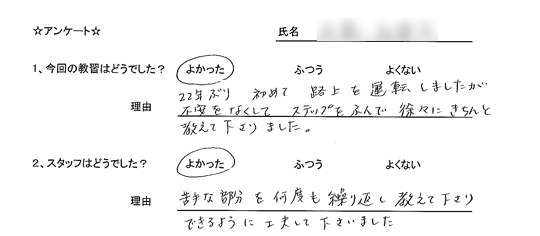 ☆アンケート☆
氏名
1、今回の教習はどうでした? よかった ふつう よくない
理由
22年ぶり 初めて 路上を運転しましたが
不安をなくして ステップをふんで 徐々にきちんと
教えて下さりました。
2、スタッフはどうでした? よかった ふつう よくない
理由
苦手な部分を何度も繰り返し教えて下さり
できるように工夫して下さいました